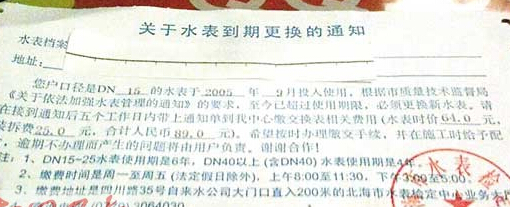 关于水表到期更换的通知
水表档案
地址:
您户口径是DN 15 的水表于 2005 年 9月投入使用，根据市质量技术监督局
《关于依法加强水表管理的通知》的要求，至今已超过使用期限，必须更换新水表。请
在接到通知后五个工作日内带上通知单到我中心缴交换表相关费用（水表时价64.0元，
装拆费25.0 元，合计人民币89.0元）。希望按时办理缴交手续，并在施工时给予配
逾期不办理而产生的问题将由用户负责。谢谢合作!
注: 1、DN15-25水表使用期是6年，DN40以上(含DN40)水表使用期是4年
2、缴费时间是周一至周五(法定假日除外)，上午8:00至11:30，下午3:00至6:00。
3、缴费地址是四川路35号自来水公司大门口直入200米的北海市水表检定中心业务大厅
3064030
水表检